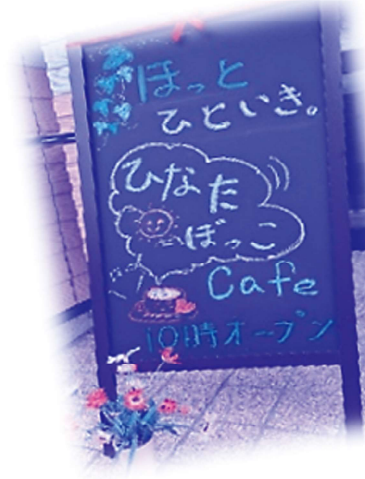 ほっと
ひといき。
ひなた
ぼっこ
Cafe
10時オープン